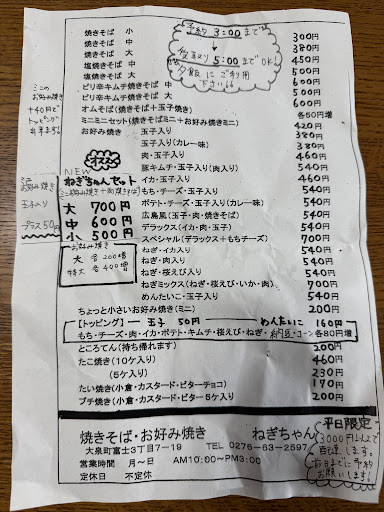 予約 3:00まで
受取り 5:00までOK!
夕飯にご利用
下さい!!
焼きそば 小 300円
焼きそば 中 380円
焼きそば 大 450円
塩焼きそば 中 500円
塩焼きそば 大 500円
ピリ辛キムチ焼きそば 中
ピリ辛キムチ焼きそば 大
オムそば(焼きそば+玉子焼き) 各80円増
ミニミニセット(焼きそばミニ+お好み焼きミニ) 420円
お好み焼き 玉子入り 380円
玉子入り(カレー味) 380円
肉・玉子入り 460円
豚キムチ・玉子入り(肉入り) 540円
イカ・玉子入り 540円
もち・チーズ・玉子入り 540円
ポテト・チーズ・玉子入り(カレー味) 540円
広島風(玉子・肉・焼きそば) 540円
デラックス(イカ・肉・玉子) 540円
スペシャル(デラックス+もちチーズ) 700円
ねぎ・イカ入り 540円
ねぎ・肉入り 540円
ねぎ・桜えび入り 540円
ねぎミックス(ねぎ・桜えび・いか・肉) 700円
めんたいこ・玉子入り 540円
ちょっと小さいお好み焼き(ミニ) 200円
ミニの
お好み焼き
+40円で
トッピング
出来ます!
オススメ
NEW
ねぎちゃんセット
(ミニお好み焼き+肉焼きそば)
大 700円
中 600円
小 500円
ミニ
お好み焼き
玉子入り
プラス50円
お好み焼き
大 各200増
特大 各400増
【トッピング】 玉子 50円 めんたいこ 160円
もち・チーズ・肉・イカ・ポテト・キムチ・桜えび・ねぎ・納豆・コーン 各80円増
ところてん(持ち帰れます) 200円
たこ焼き(10ケ入り) 460円
(5ケ入り) 230円
たい焼き(小倉・カスタード・ビターチョコ) 170円
プチ焼き(小倉・カスタード・ビター5ケ入り 200円
焼きそば・お好み焼き ねぎちゃん
大泉町富士3丁目7-19 TEL 0276-63-2597
営業時間 月〜日 AM10:00〜PM3:00
定休日 不定休
平日限定
3000円以上で
配達します。
前日までに予約
お願いします。